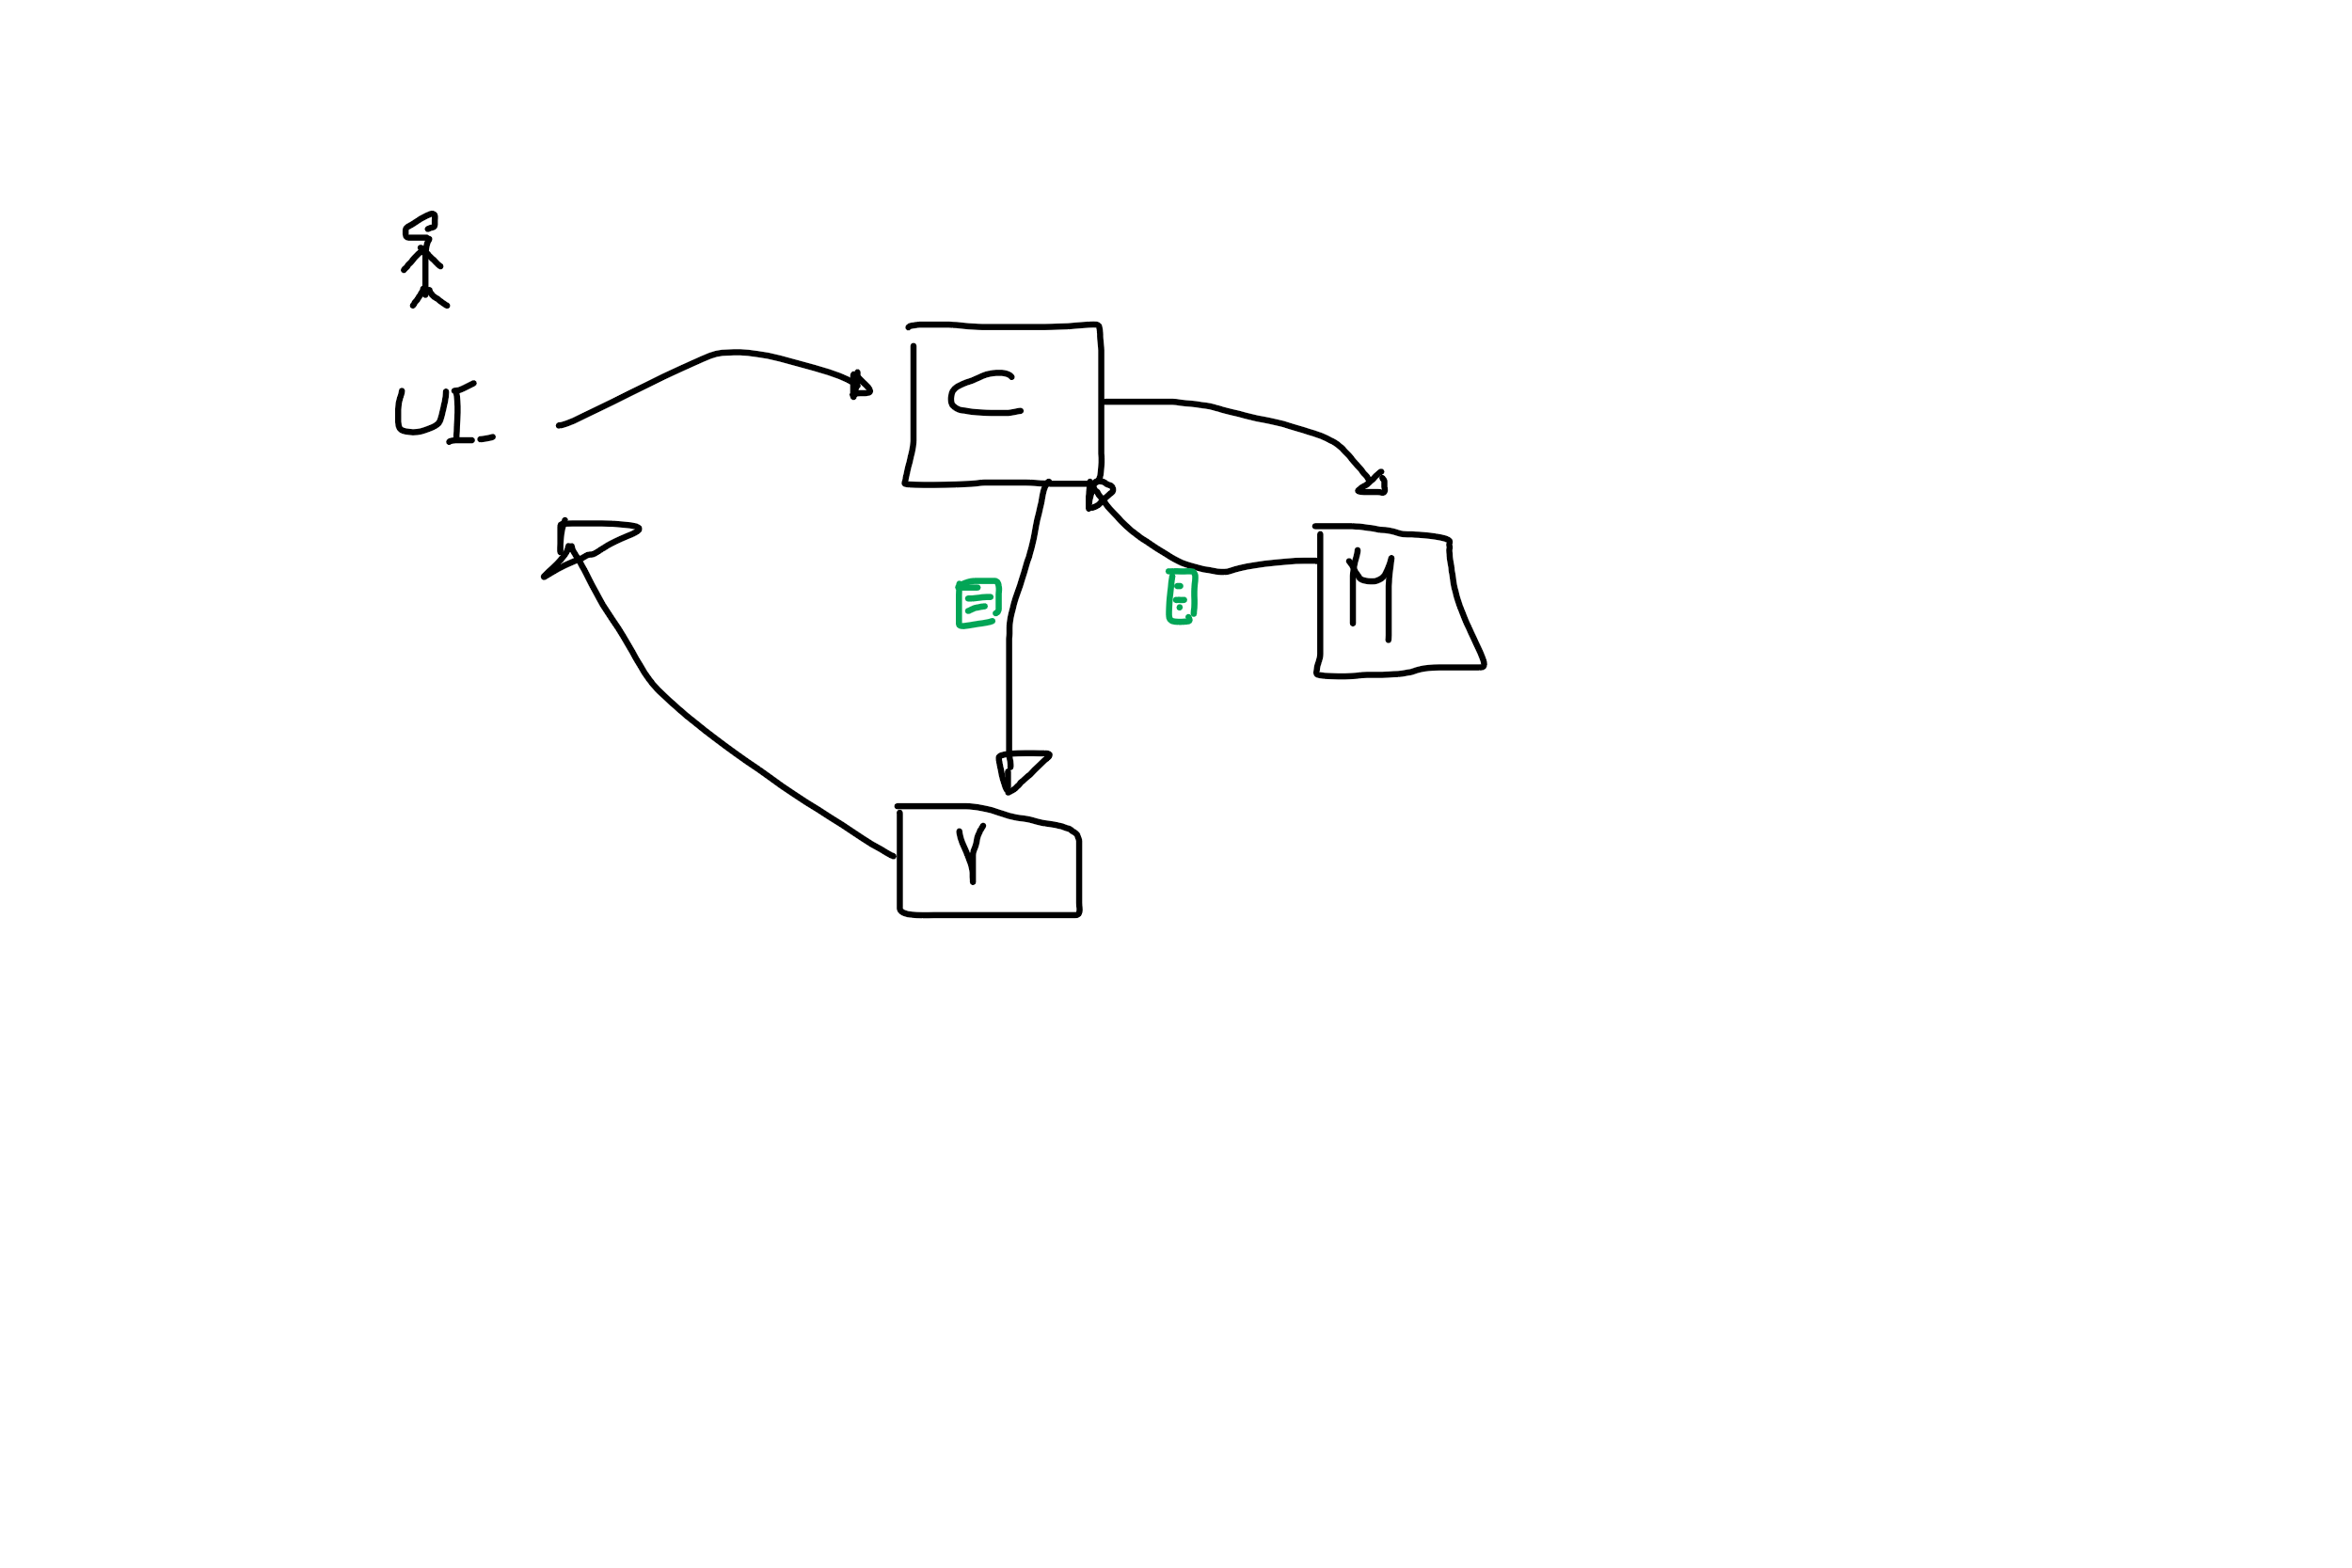 UI
C
M
Y